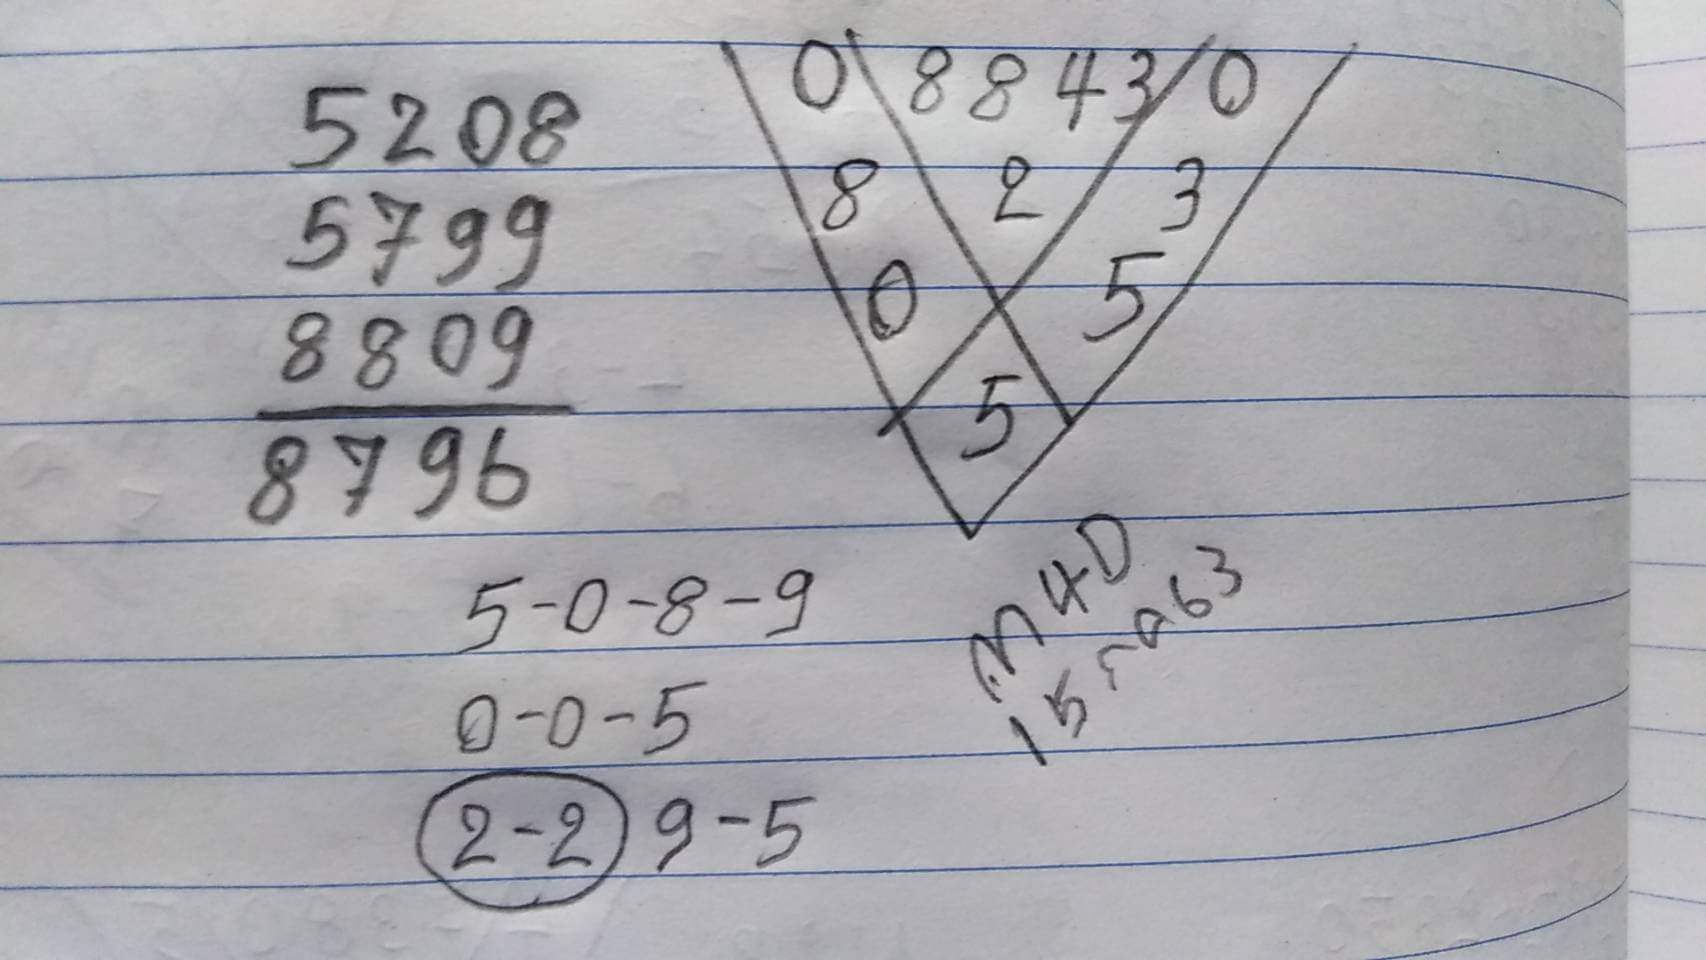 5208
5799
8809
8796
0 8843 0
8 2 3
0 5
5
5-0-8-9
0-0-5
2-2 9-5